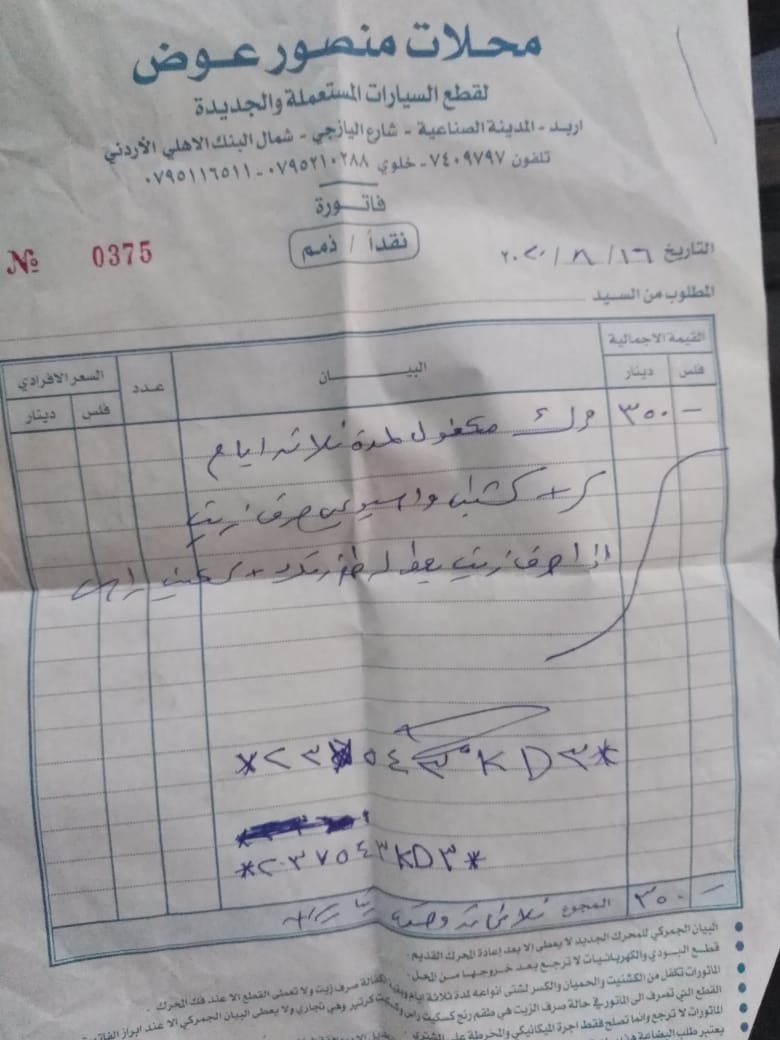 محلات منصور عوض
لقطع السيارات المستعملة والجديدة
اربد - المدينة الصناعية - شارع اليازجي - شمال البنك الاهلي الأردني
تلفون ٧٤٠٩٧٩٧ - خلوي ٠٧٩٥٢١٠٢٨٨ - ٠٧٩٥١١٦٥١١
فاتورة
نقداً / ذمم
№ 0375
التاريخ ١٦ / ٨ / ٢٠٢٠
المطلوب من السيد
القيمة الاجمالية البيـــــان عدد السعر الافرادي
فلس دينار فلس دينار
- ٣٥٠ محرك مكفول لمدة ثلاثة ايام
كسر + كشتبان صرف زيت
اذا صرف زيت طقم رنجات +
*٢٣ ٥٤٣KD٣*
*٢٠٣٧٥٤٣KD٣*
- ٣٥٠ المجموع ثلاثمائة وخمسون
البيان الجمركي للمحرك الجديد لا يعطى الا بعد إعادة المحرك القديم.
قطع البودي والكهربائيات لا ترجع بعد خروجها من المحل.
الماتورات تكفل من الكشتبت والحميان والكسر لشتى انواعه لمدة ثلاثة ايام الكفالة صرف زيت ولا تعطى القطع الا عند فك المحرك.
القطع التي تصرف الى الماتور في حالة صرف الزيت هي طقم رنج كسكيت راس كرتير وهي تجاري ولا يعطى البيان الجمركي الا عند ابراز
الماتورات لا ترجع وانما تصلح فقط اجرة الميكانيكي والمخرطة على المشتري.
يعتبر طلب البضاعة